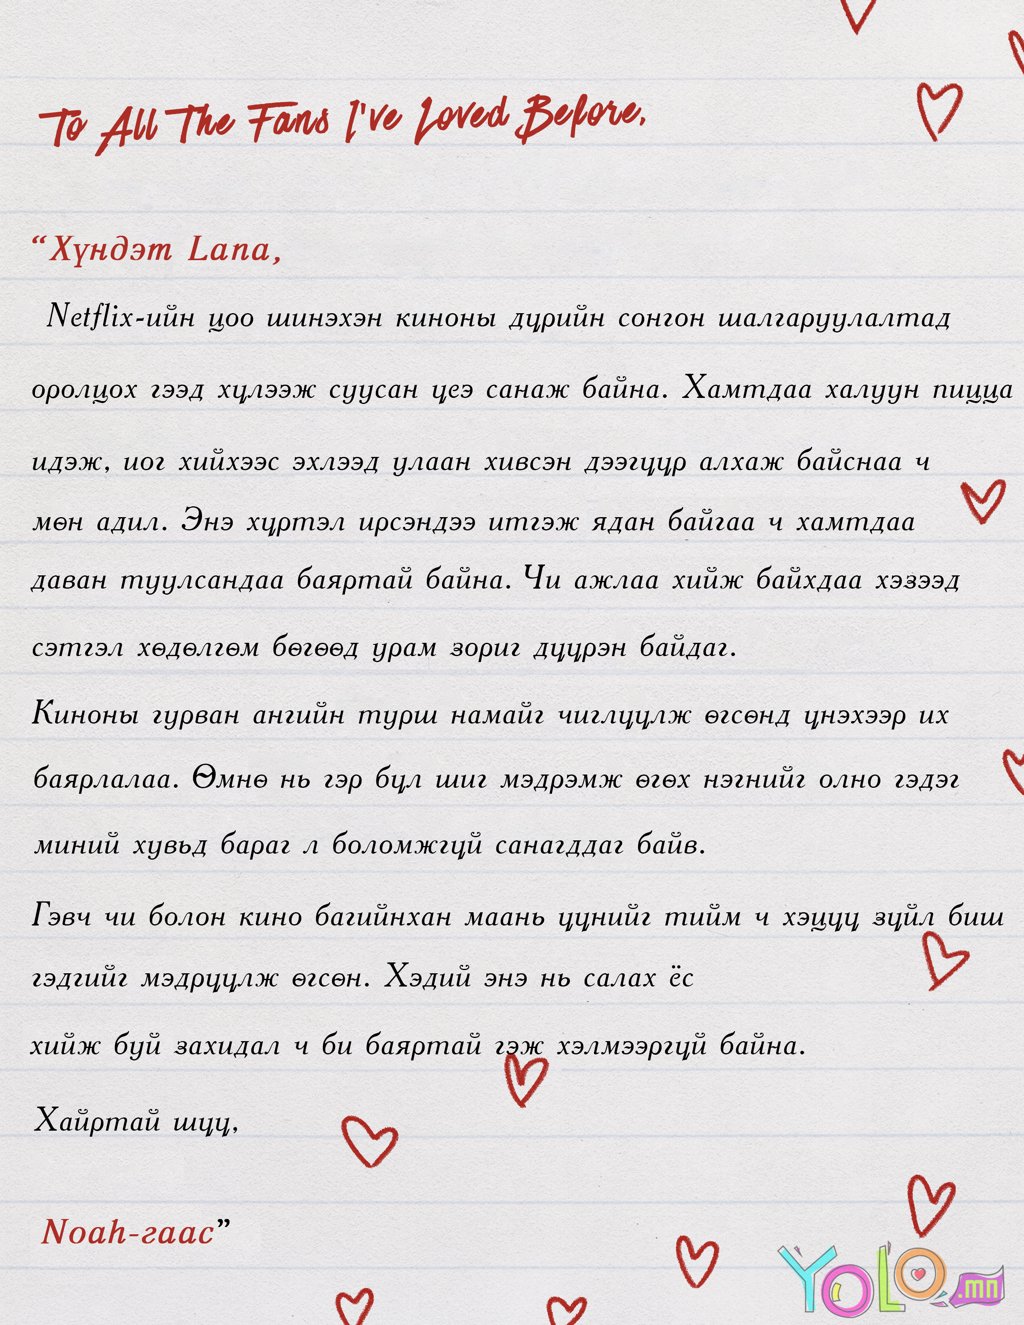 To All The Fans I've Loved Before,
“Хүндэт Lana,
Netflix-ийн цоо шинэхэн киноны дүрийн сонгон шалгаруулалтад
оролцох гээд хүлээж суусан үеэ санаж байна. Хамтдаа халуун пицца
идэж, иог хийхээс эхлээд улаан хивсэн дээгүүр алхаж байснаа ч
мөн адил. Энэ хүртэл ирсэндээ итгэж ядан байгаа ч хамтдаа
даван туулсандаа баяртай байна. Чи ажлаа хийж байхдаа хэзээд
сэтгэл хөдөлгөм бөгөөд урам зориг дүүрэн байдаг.
Киноны гурван ангийн турш намайг чиглүүлж өгсөнд үнэхээр их
баярлалаа. Өмнө нь гэр бүл шиг мэдрэмж өгөх нэгнийг олно гэдэг
миний хувьд бараг л боломжгүй санагддаг байв.
Гэвч чи болон кино багийнхан маань үүнийг тийм ч хэцүү зүйл биш
гэдгийг мэдрүүлж өгсөн. Хэдий энэ нь салах ёс
хийж буй захидал ч би баяртай гэж хэлмээргүй байна.
Хайртай шүү,
Noah-гаас”
YOLO.mn